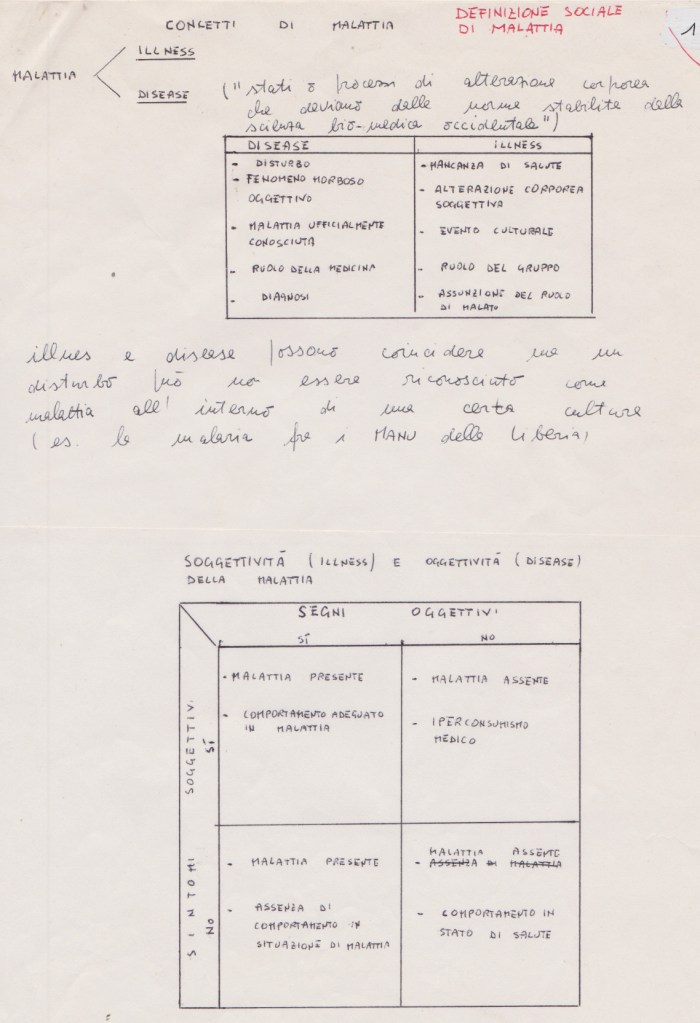 CONCETTI DI MALATTIA
DEFINIZIONE SOCIALE
DI MALATTIA
1
MALATTIA
ILLNESS
DISEASE
("stati o processi di alterazione corporea
che deviano dalle norme stabilite dalla
scienza bio-medica occidentale")
DISEASE
- DISTURBO
- FENOMENO MORBOSO
OGGETTIVO
- MALATTIA UFFICIALMENTE
CONOSCIUTA
- RUOLO DELLA MEDICINA
- DIAGNOSI
ILLNESS
- MANCANZA DI SALUTE
- ALTERAZIONE CORPOREA
SOGGETTIVA
- EVENTO CULTURALE
- RUOLO DEL GRUPPO
- ASSUNZIONE DEL RUOLO
DI MALATO
illnes e disease possono coincidere ma un
disturbo può non essere riconosciuto come
malattia all'interno di una certa cultura
(es. la malaria fra i MANU della Liberia)
SOGGETTIVITÀ (ILLNESS) E OGGETTIVITÀ (DISEASE)
DELLA MALATTIA
SEGNI OGGETTIVI
SÍ
NO
SINTOMI SOGGETTIVI
SÍ
- MALATTIA PRESENTE
- COMPORTAMENTO ADEGUATO
IN MALATTIA
- MALATTIA ASSENTE
- IPERCONSUMISMO
MEDICO
NO
- MALATTIA PRESENTE
- ASSENZA DI
COMPORTAMENTO IN
SITUAZIONE DI MALATTIA
MALATTIA ASSENTE
- ASSENZA DI MALATTIA
- COMPORTAMENTO IN
STATO DI SALUTE